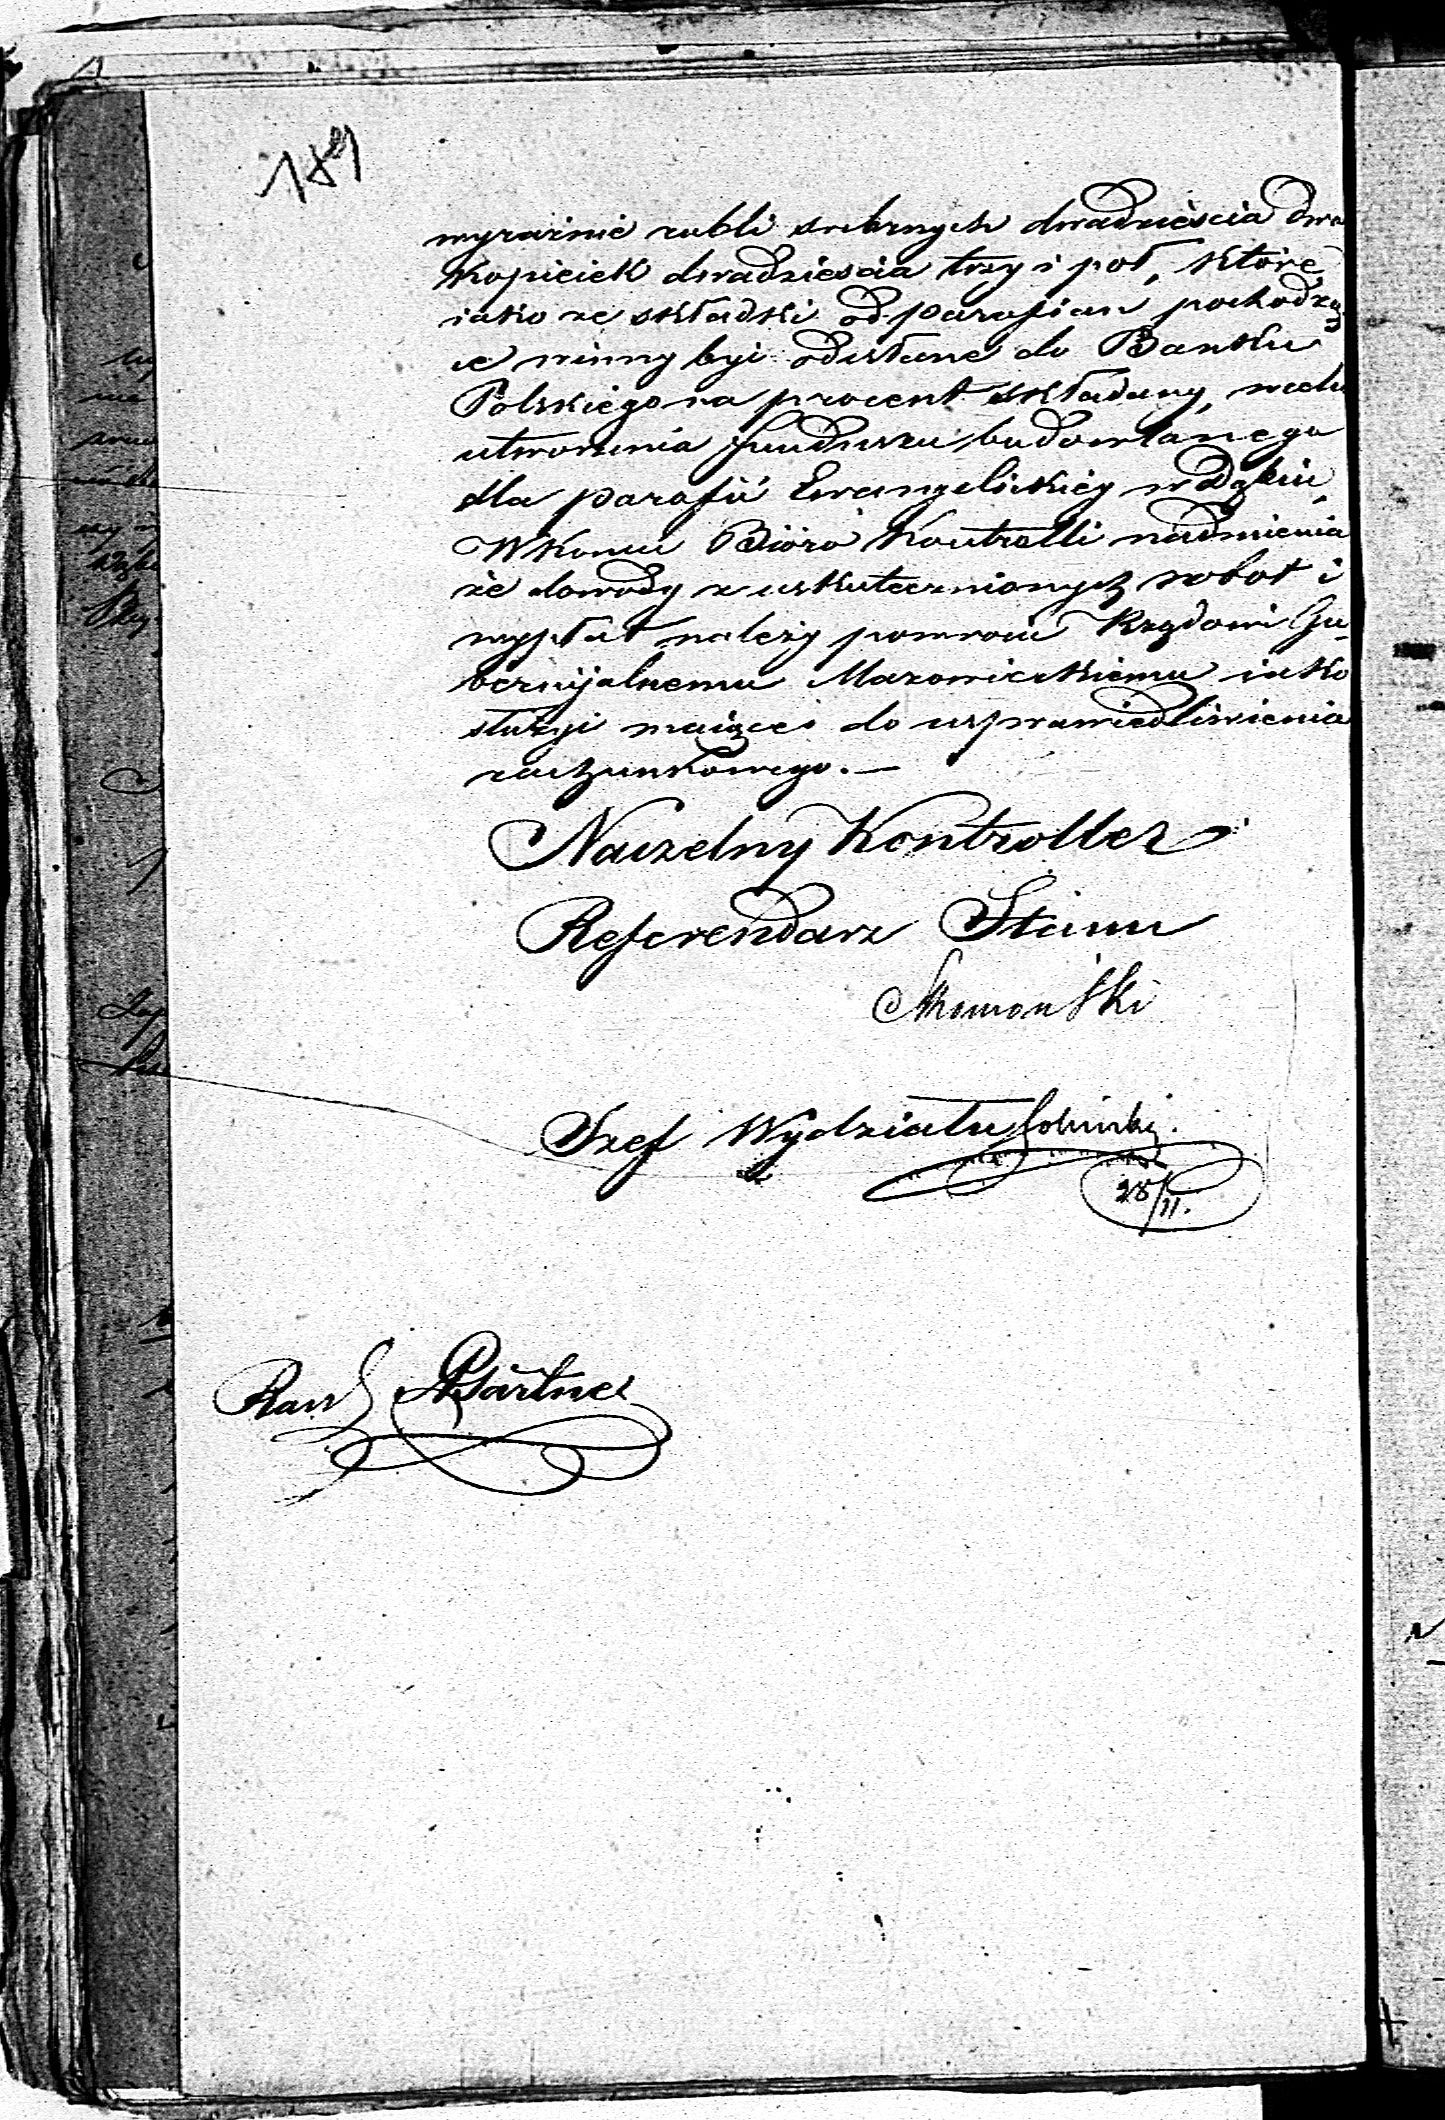 189
wyraźnie rubli srebrnych dwadzieścia dwa
Kopieiek dwadzieścia trzy i pół, które
iako ze składki od parafian pochodzą-
ce winny być odesłane do Banku
Polskiego na procent składany, w celu
utworzenia funduszu budowlanego
dla parafii Ewangelickiéy w Dąbiu,
W końcu Bióro Kontrolli nadmienia
że dowody z uskutecznionych robot i
wypłat należy powrócić Rządowi Gu-
bernijalnemu Mazowieckiemu iako
służyć maiące do usprawiedliwienia
rachunkowego. —
Naczelny Kontroller
Referendarz Stanu
Szef Wydziału
28/11.